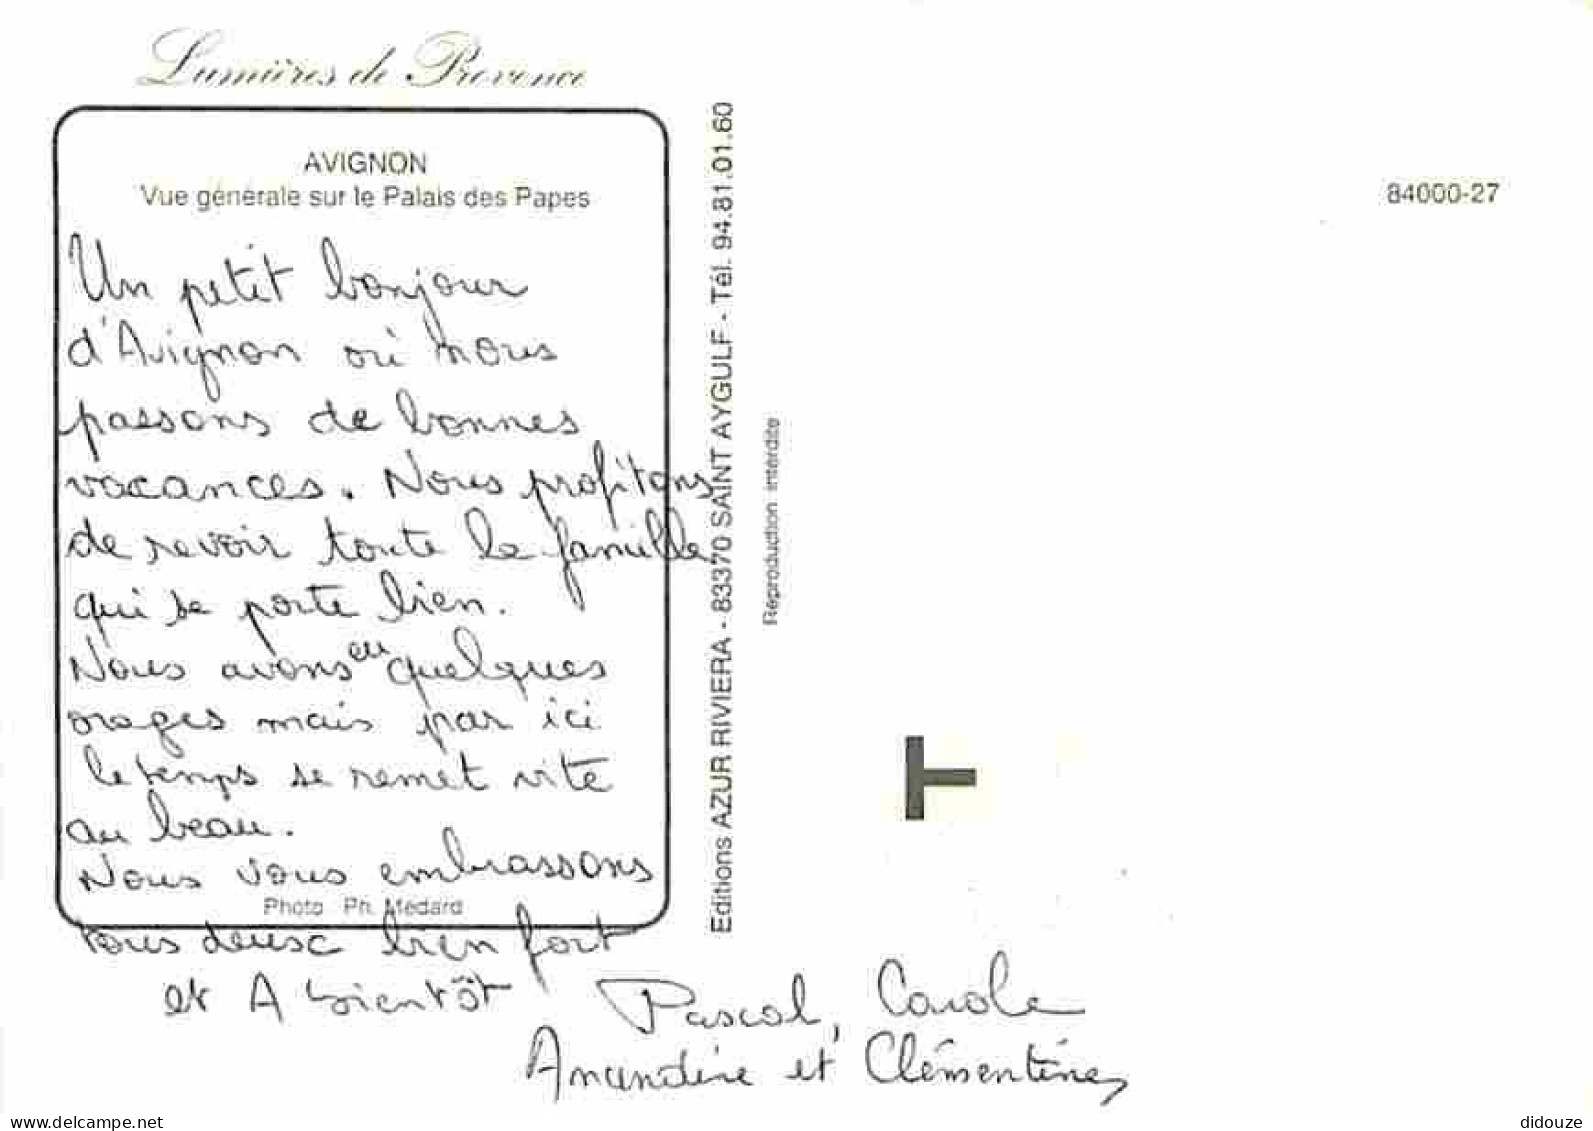 Lumières de Provence
AVIGNON
Vue générale sur le Palais des Papes
Un petit bonjour
d'Avignon où nous
passons de bonnes
vacances. Nous profitons
de revoir toute la famille
qui se porte bien.
Nous avons eu quelques
orages mais par ici
le temps se remet vite
au beau.
Nous vous embrassons
Photo Ph. Médard
tous deux bien fort
et A bientôt
Pascal, Carole
Amandine et Clémentine
Editions AZUR RIVIERA - 83370 SAINT AYGULF - Tél. 94.81.01.60
Reproduction interdite
84000-27
T
delcampe.net
didouze